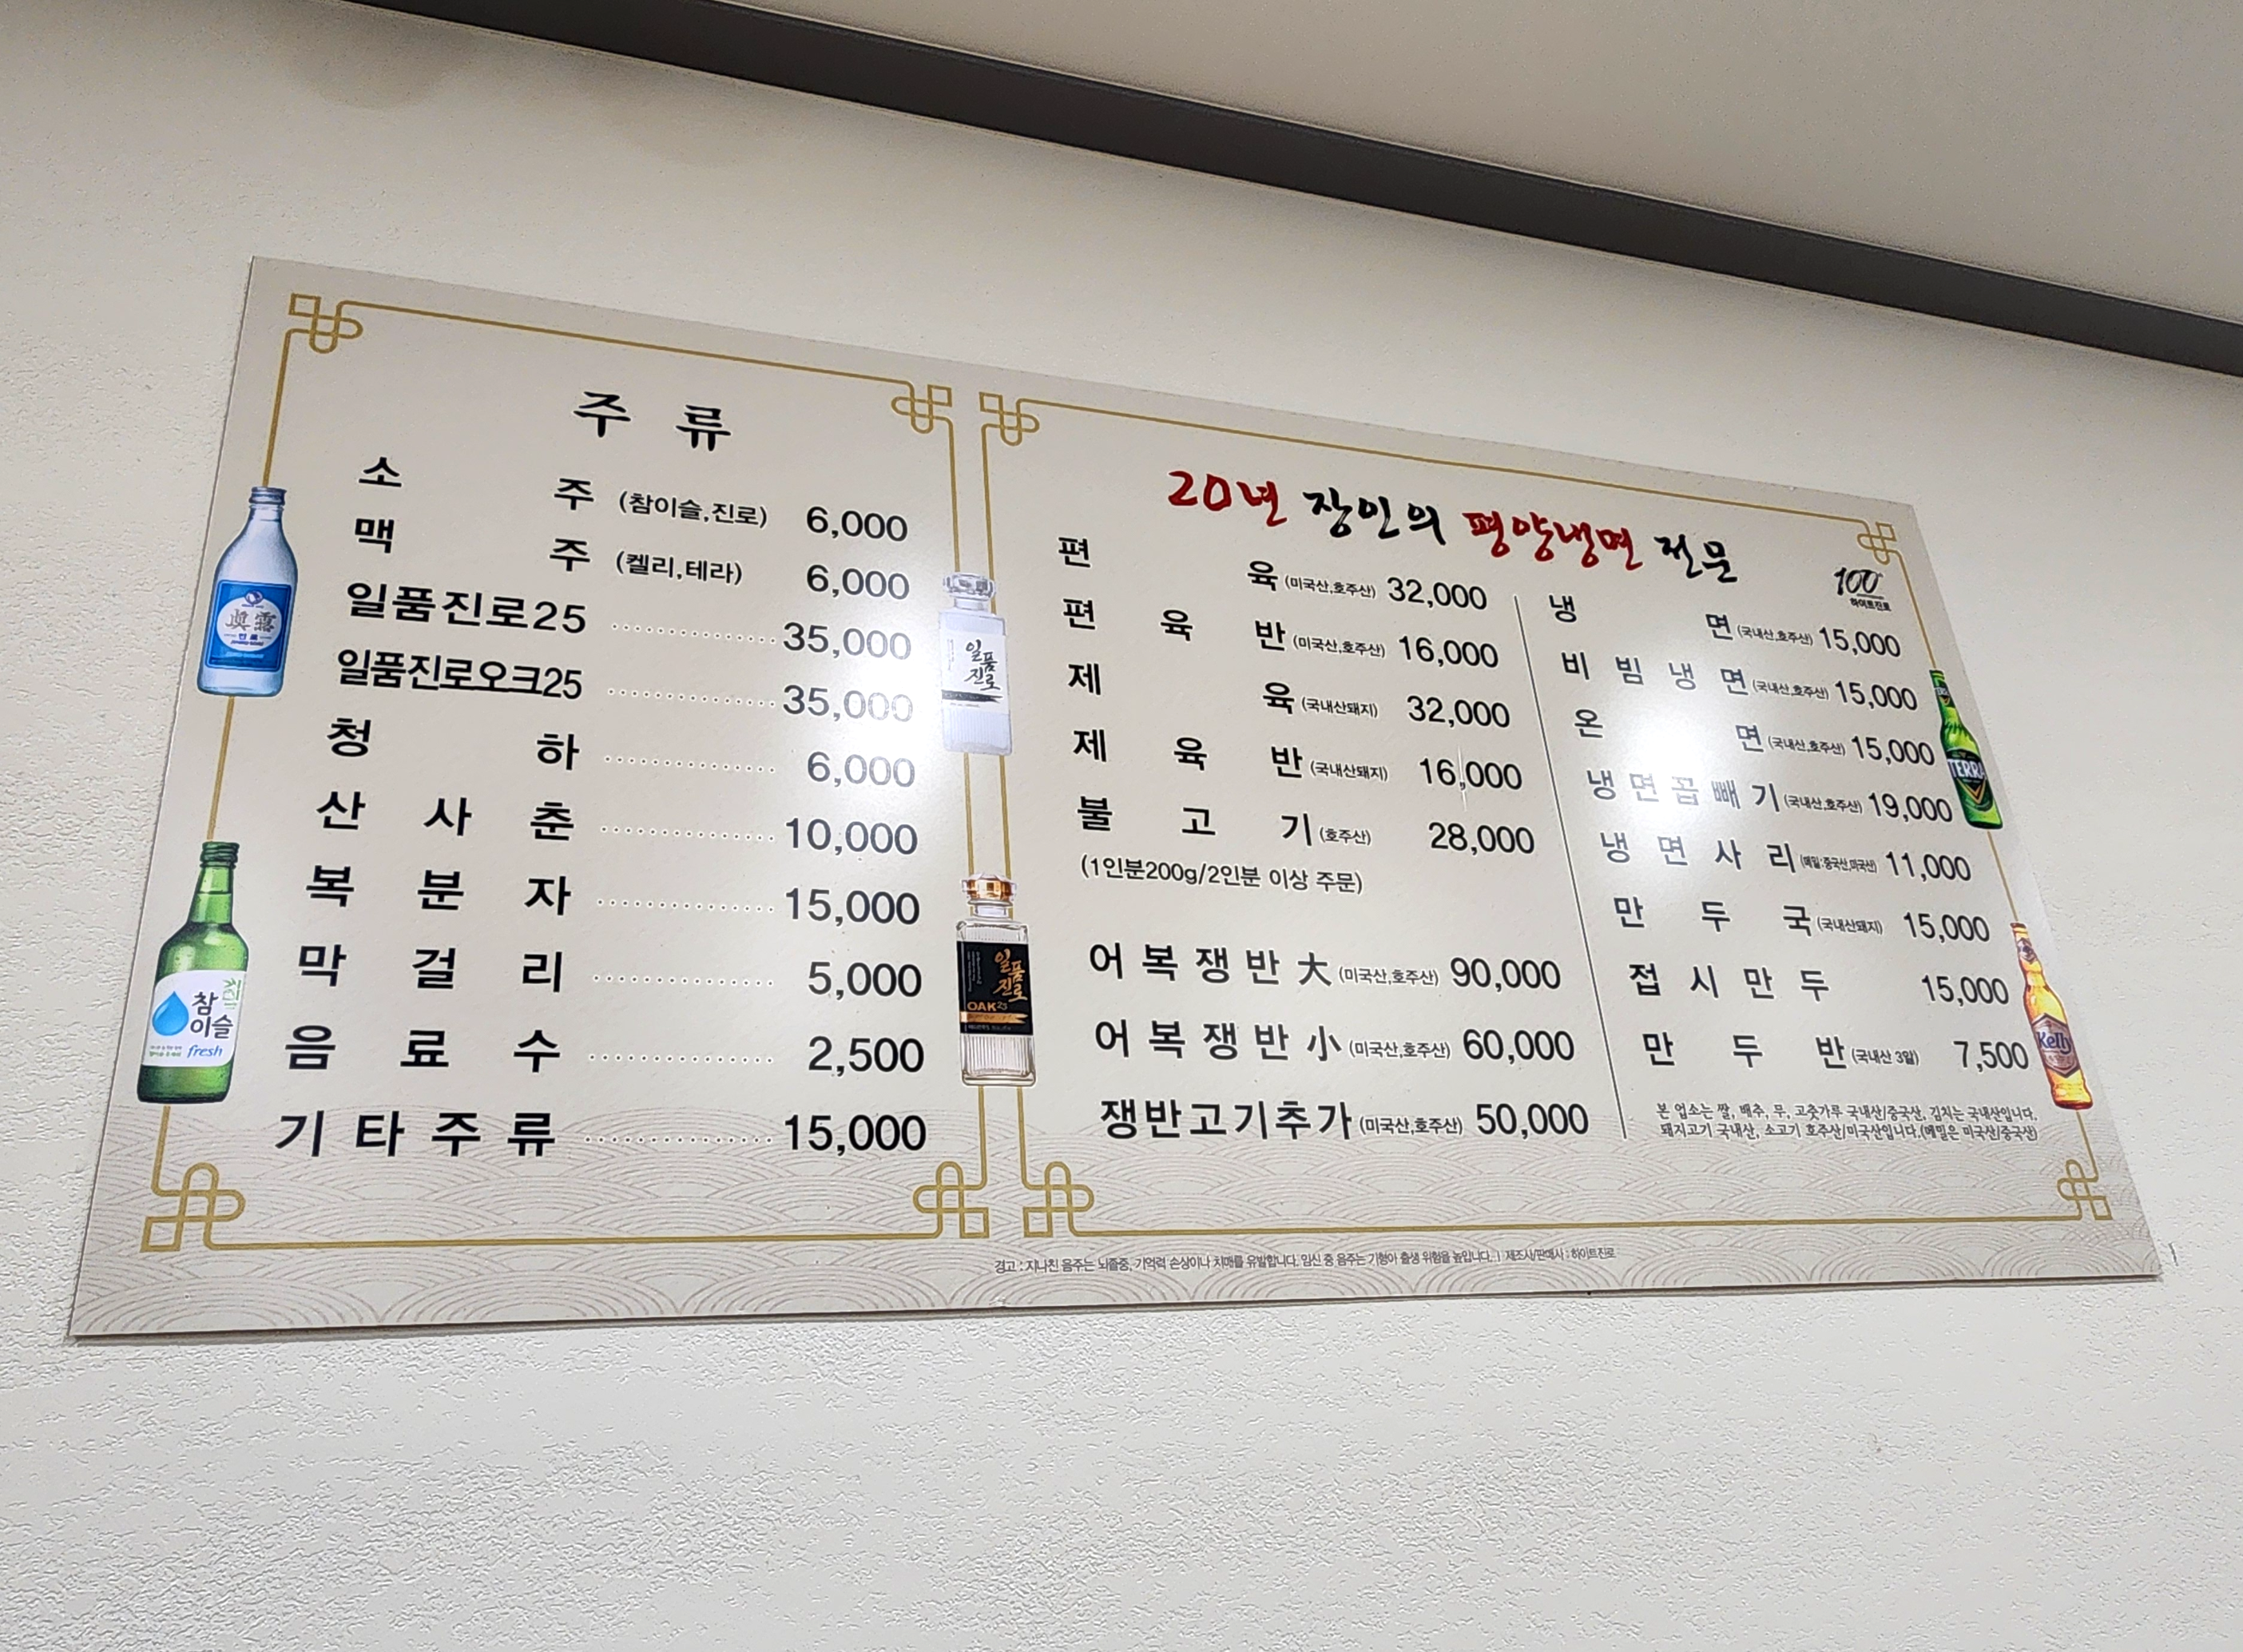 주 류
소 주 (참이슬,진로) 6,000
맥 주 (켈리,테라) 6,000
일품진로25 35,000
일품진로오크25 35,000
청 하 6,000
산 사 춘 10,000
복 분 자 15,000
막 걸 리 5,000
음 료 수 2,500
기 타 주 류 15,000
眞露
진로
참
이슬
fresh
일품
진로
일품
진로
OAK25
20년 장인의 평양냉면 전문
100
하이트진로
편 육 (미국산,호주산) 32,000
편 육 반 (미국산,호주산) 16,000
제 육 (국내산돼지) 32,000
제 육 반 (국내산돼지) 16,000
불 고 기 (호주산) 28,000
(1인분200g/2인분 이상 주문)
어 복 쟁 반 大 (미국산,호주산) 90,000
어 복 쟁 반 小 (미국산,호주산) 60,000
쟁반고기추가 (미국산,호주산) 50,000
냉 면 (국내산,호주산) 15,000
비 빔 냉 면 (국내산,호주산) 15,000
온 면 (국내산,호주산) 15,000
냉 면 곱 빼 기 (국내산,호주산) 19,000
냉 면 사 리 (메밀:중국산,미국산) 11,000
만 두 국 (국내산돼지) 15,000
접 시 만 두 15,000
만 두 반 (국내산 3알) 7,500
본 업소는 쌀, 배추, 무, 고춧가루 국내산/중국산, 김치는 국내산입니다.
돼지고기 국내산, 소고기 호주산/미국산입니다.(메밀은 미국산/중국산)
TERRA
Kelly
경고 : 지나친 음주는 뇌졸중, 기억력 손상이나 치매를 유발합니다. 임신 중 음주는 기형아 출생 위험을 높입니다. | 제조사/판매사 : 하이트진로